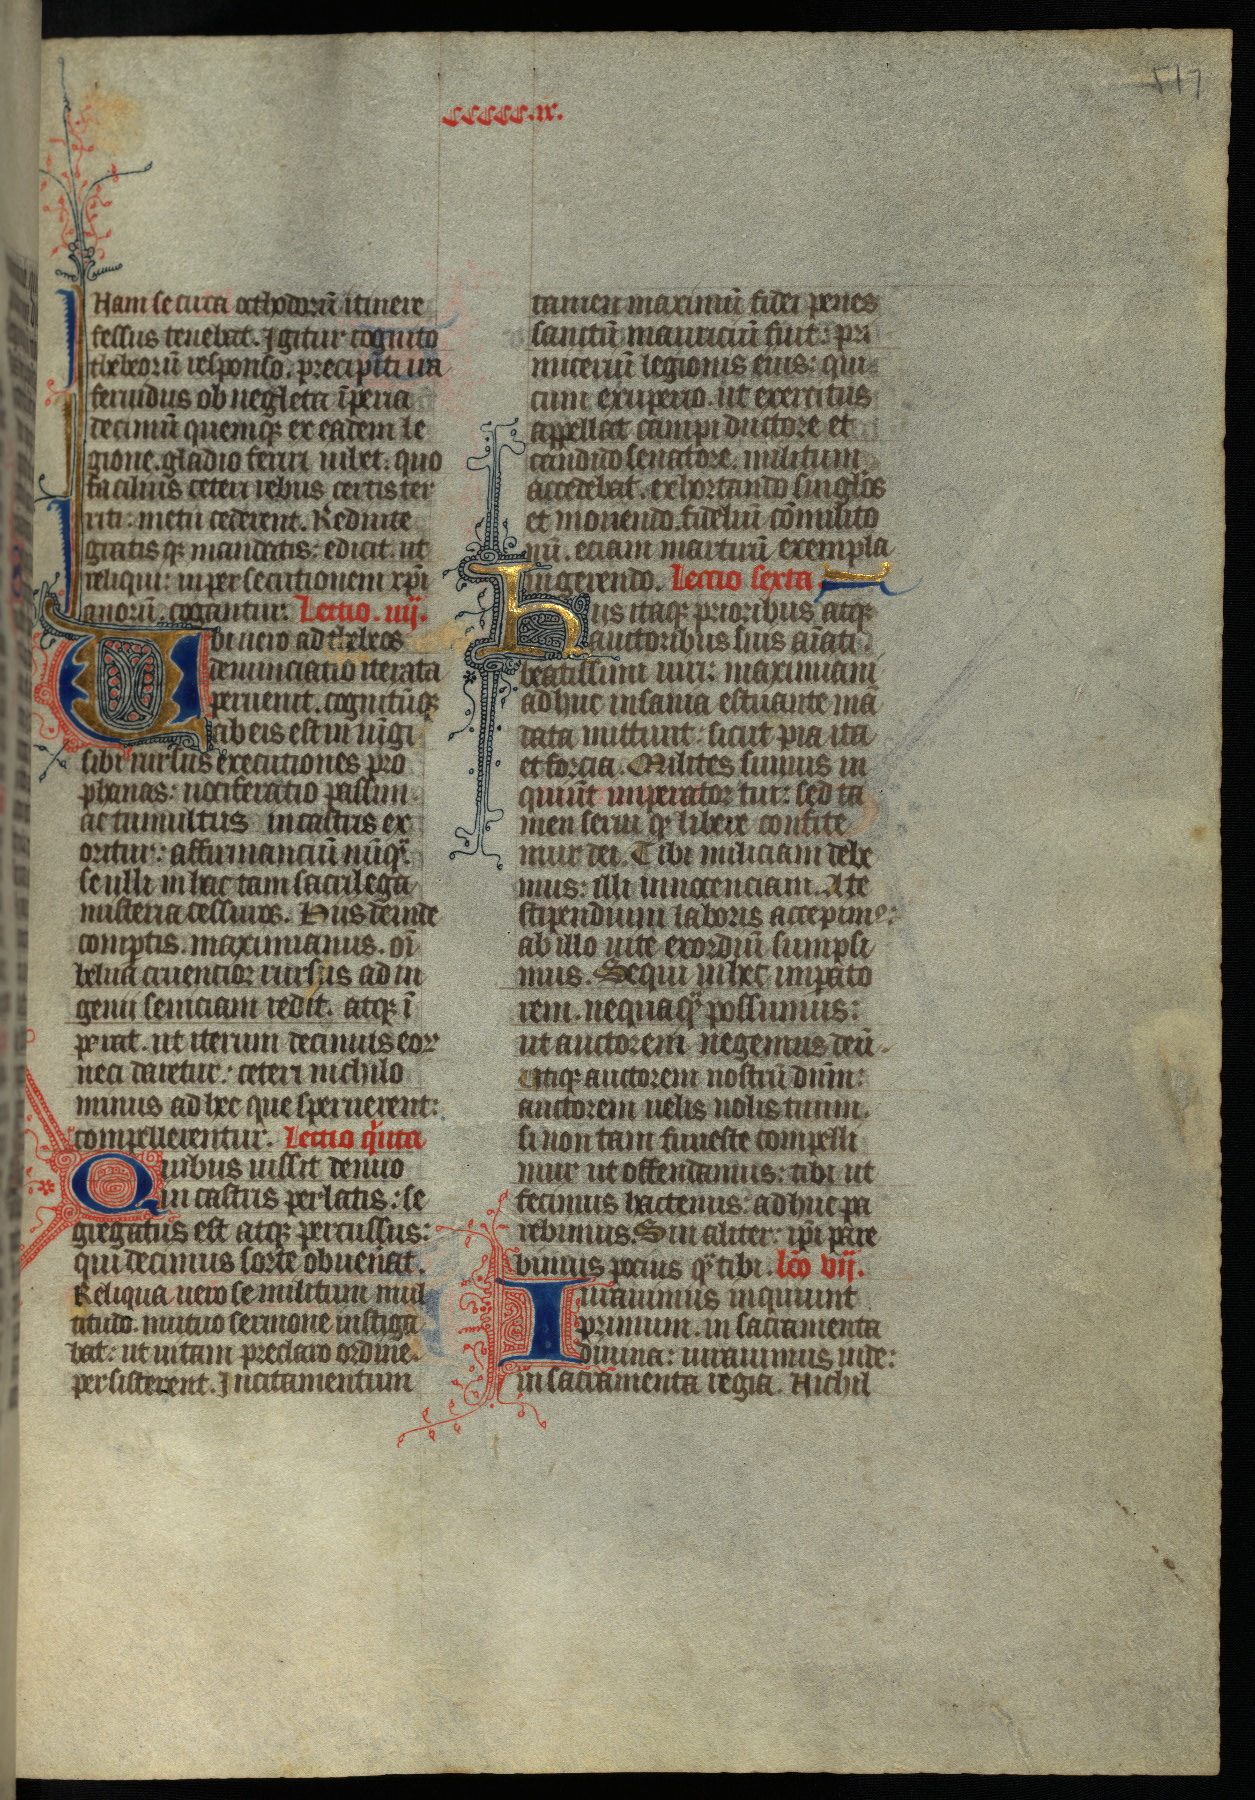 517
ccccc.ix.
Nam se circa octhodorū itinere
fessus tenebat. Igitur cognito
thebeorū responso. precipiti ira
feruidus ob neglecta īperia
decimū quemq; ex eadem le
gione. gladio feriri iubet. quo
facilius ceteri rebus certis ter
riti: metu cederent. Rediuite
gratis q; mandatis: edicit. ut
reliqui: in persecutionem xp̄i
anorū. cogantur. Lectio .iiij.
Ubi uero ad thebeos
denunciatio iterata
peruenit. cognitūq;
ab eis est iniūgi
sibi rursus executiones pro
phanas: uociferatio passim
ac tumultus in castris ex
oritur: affirmanciū nūq̄
se ulli in hac tam sacrilega
misteria cessuros. Hus deinde
comptis. maximianus. oī
belua cruentior rursus ad in
genii seuiciam redit. atq; ī
perat. ut iterum decimus eor
neci daretur: ceteri nichilo
minus ad hec que spreuerent:
compellerentur. Lectio q̄nta
Quibus iussit denuo
in castris perlatis: se
gregatus est atq; percussus:
qui decimus sorte obuenat.
Reliqua uero se militum mul
titudo. mutuo sermone instiga
bat: ut uitam preclaro ordine
persisterent. Incitamentum
tamen maximū fidei penes
sanctū mauriciū fuit: pri
miceriū legionis eius: qui
cum exuperio. ut exercitus
appellat campi ductore et
candido senatore. militum
accedebat. exhortando singlos
et moriendo. fideliū cōmilito
nū. etiam martirū exempla
ingerendo. Lectio sexta
Hiis itaq; prioribus atq;
auctoribus suis aīati
beatissimi uiri: maximiani
adhuc insania estuante mā
data mittunt: sicut pia ita
et forcia. Milites sumus in
quiūt imperator tui: sed ta
men serui q; libere confite
mur dei. Tibi miliciam debe
mus: illi innocenciam. A te
stipendium laboris accepime:
ab illo uite exordiū sumpsi
mus. Sequi in hec impato
rem. nequaq̄ possumus:
ut auctorem negemus deū.
Utiq; auctorem nostrū dn̄m:
auctorem uelis nolis tuum.
si non tam funeste compelli
mur ut offendamus: tibi ut
fecimus hactenus: adhuc pa
rebimus. Sin aliter: ip̄i pare
bimus pocius q̄ tibi. Lc̄o vij.
Iurauimus inquiunt
primum. in sacramenta
diuina: iurauimus inde:
in sacramenta regia. Nichil